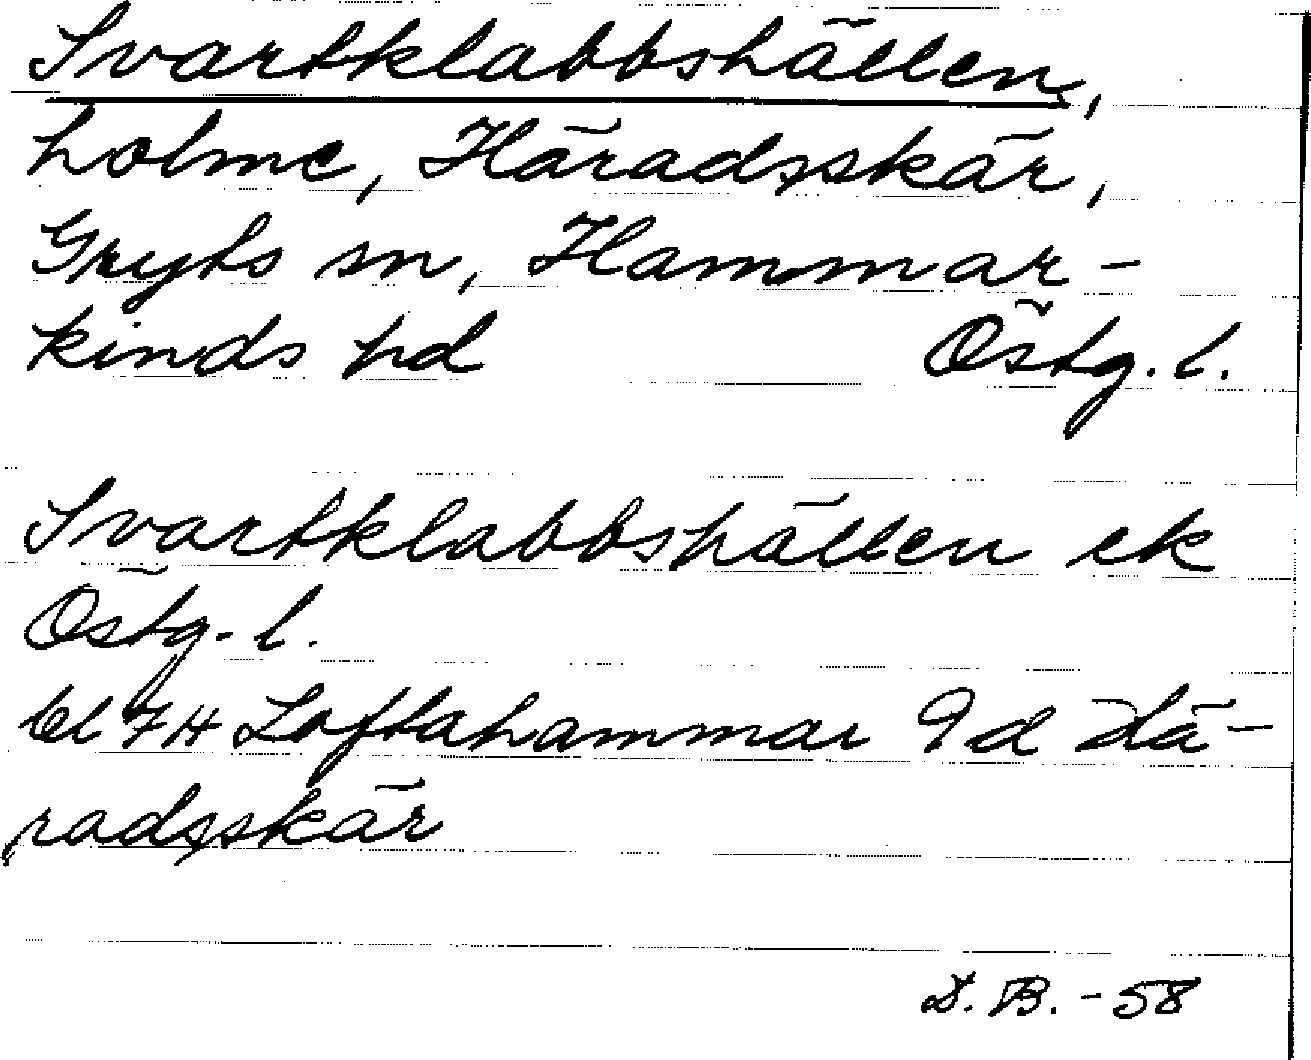 Svartklabbshällen,
holme, Häradsskär,
Gryts sn, Hammar-
kinds hd Östg. l.
Svartklabbshällen ek
Östg. l.
bl 7H Loftahammar 9d Hä-
radsskär
D. B. - 58